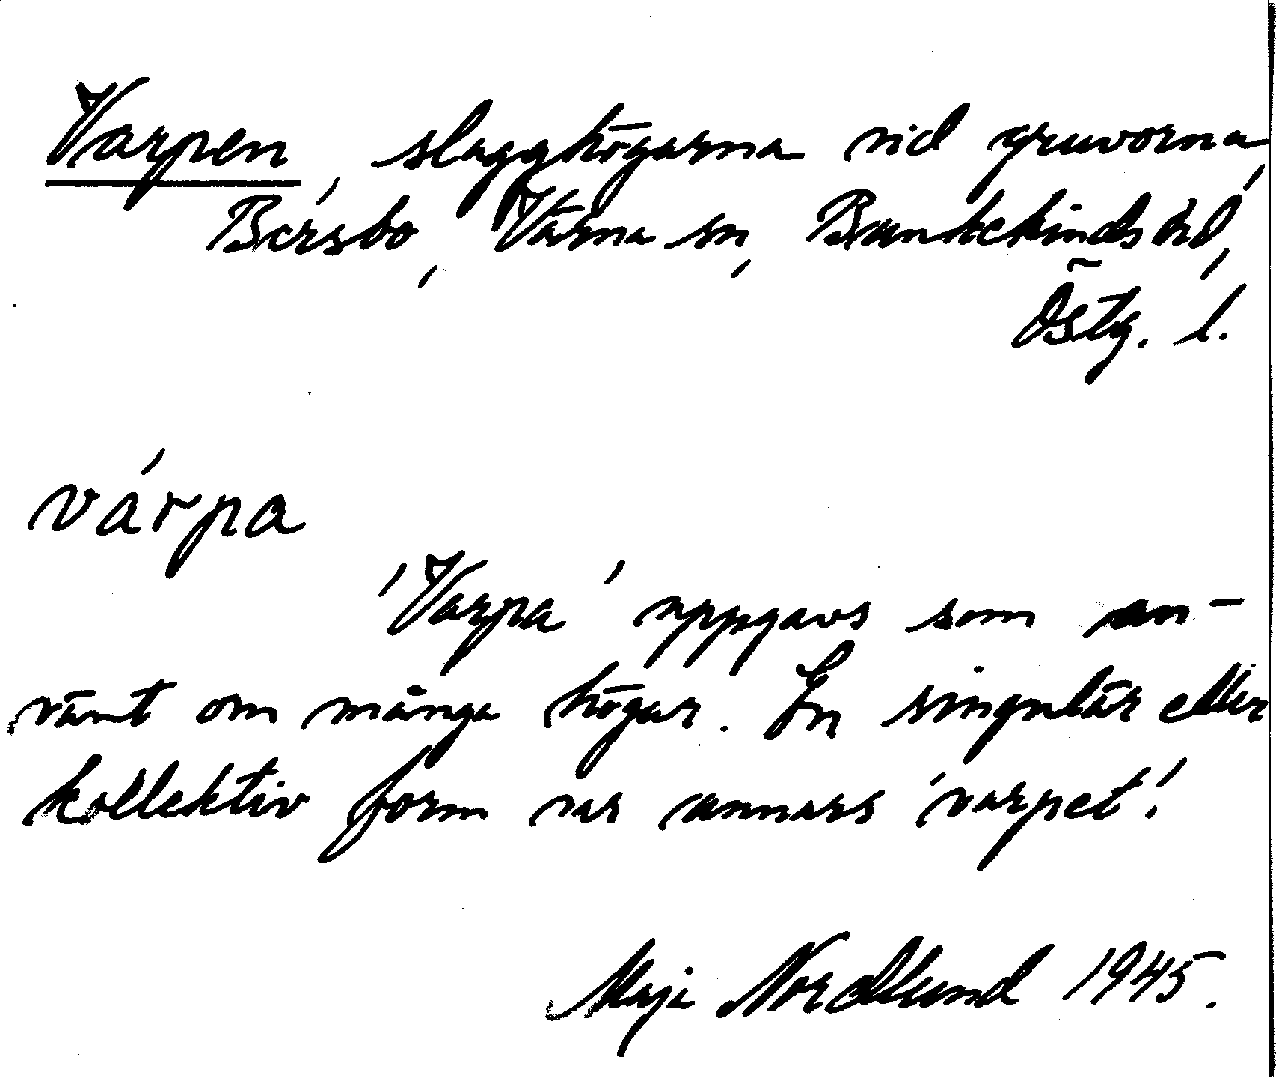 Varpen, slagghögarna vid gruvorna,
Bersbo, Värna sn, Bankekinds hd,
Östg. l.
várpa
'Varpa' uppgavs som an-
vänt om många högar. En singulär eller
kollektiv form var annars 'varpet'.
Maja Nordlund 1945.